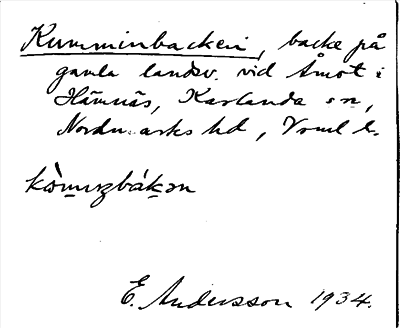 Kumminbacken, backe på
gamla landsv. vid Åmot i
Hämnäs, Karlanda sn,
Nordmarks hd, Vrml l.
kòmuṇbákən
E. Andersson 1934.